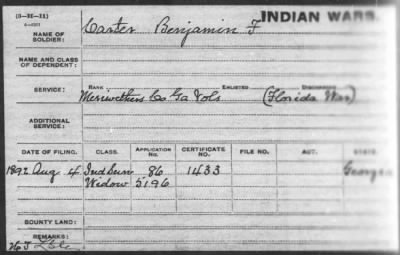 (3-3E-11)
6-4221
INDIAN WARS.
NAME OF SOLDIER: Carter Benjamin F
NAME AND CLASS OF DEPENDENT:
RANK ENLISTED DISCHARGED
SERVICE: Meriwethers Co Ga Vols (Florida War)
ADDITIONAL SERVICE:
DATE OF FILING. CLASS. APPLICATION No. CERTIFICATE No. FILE NO. ACT. STATE.
1892 Aug 4 Ind Surv 86 1433 Georgia
Widow 5196
BOUNTY LAND:
REMARKS: